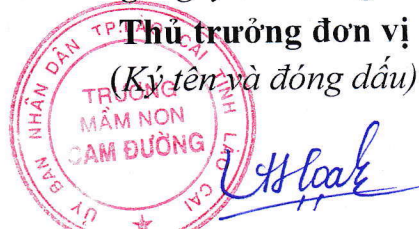 Thủ trưởng đơn vị
(Ký tên và đóng dấu)
ỦY BAN NHÂN DÂN TP. LÀO CAI TỈNH LÀO CAI
TRƯỜNG
MẦM NON
CAM ĐƯỜNG